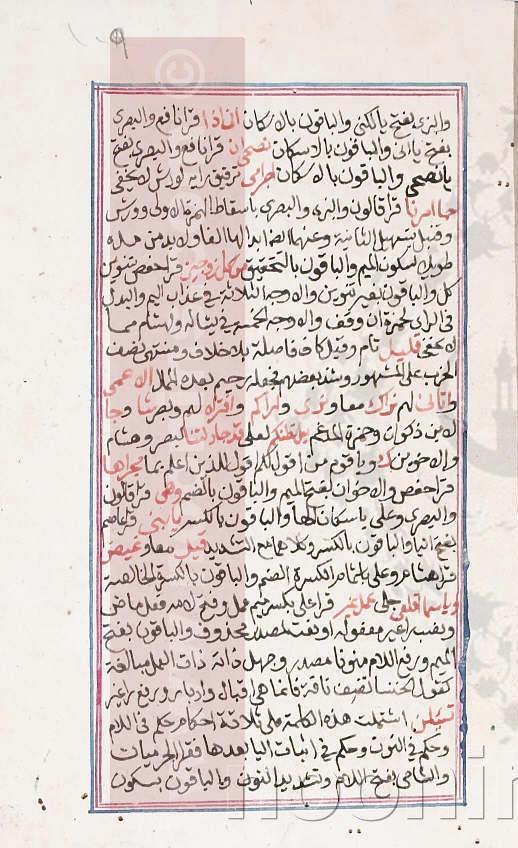 ١٠٩
والبزي بفتح يا لكني والباقون بالاسكان اني اذا قرا نافع والبصري
بفتح يا اني والباقون بالاسكان نصحي ان قرا نافع والبصري بفتح
يا نصحي والباقون بالاسكان اجرامي ترقيق رايه لورش لا يخفى
جا امرنا قرا قالون والبزي والبصري باسقاط الهمزة الاولى وورش
وقنبل بتسهيل الثانية وعنهما ايضا ابدالها الفا ولا بد من مده
طويلا لسكون الميم والباقون بالتحقيق من كل زوجين قرا حفص بتنوين
كل والباقون بغير تنوين والاوجه الثلاثة في عذاب اليم والبدل
في الراي لحمزة ان وقف والاوجه الخمسة في يشا له ولهشام مما
لا يخفى قليل تام وقيل كاف فاصلة بلا خلاف ومنتهى نصف
الحزب على المشهور وشذ بعضهم فجعله رحيم بعده الممال الاعمى
واتاني لهم نراك معا ونرى واراكم وافتراه لهم وبصر شا وجا
لابن ذكوان وحمزة المدغم بل نظنكم لعلي قد جادلتنا لبصر وهشام
والاخوين ك ويا قوم من اقول لكم اقول للذين اعلم بما مجراها
قرا حفص والاخوان بفتح الميم والباقون بالضم وهي قرا قالون
والبصري وعلي باسكان الها والباقون بالكسر يا بني قرا عاصم
بفتح اليا والباقون بالكسر وكلاهما مع التشديد قيل معا وغيض
قرا هشام وعلي باشمام الكسرة الضم والباقون بالكسرة الخالصة
ويا سما اقلعي جلي عمل غير قرا علي بكسر ميم عمل وفتح لامه فعل ماض
ونصب را غير مفعوله او نعت لمصدر محذوف والباقون بفتح
الميم ورفع اللام منونا مصدر وجعل ذاته ذات العمل مبالغة
كقول الخنسا تصف ناقة فانما هي اقبال وادبار ورفع را غير
تسئلن اشتملت هذه الكلمة على ثلاثة احكام حكم في اللام
وحكم في النون وحكم في اثبات اليا بعدها فقرا الحرميان
والشامي بفتح اللام وتشديد النون والباقون بسكون